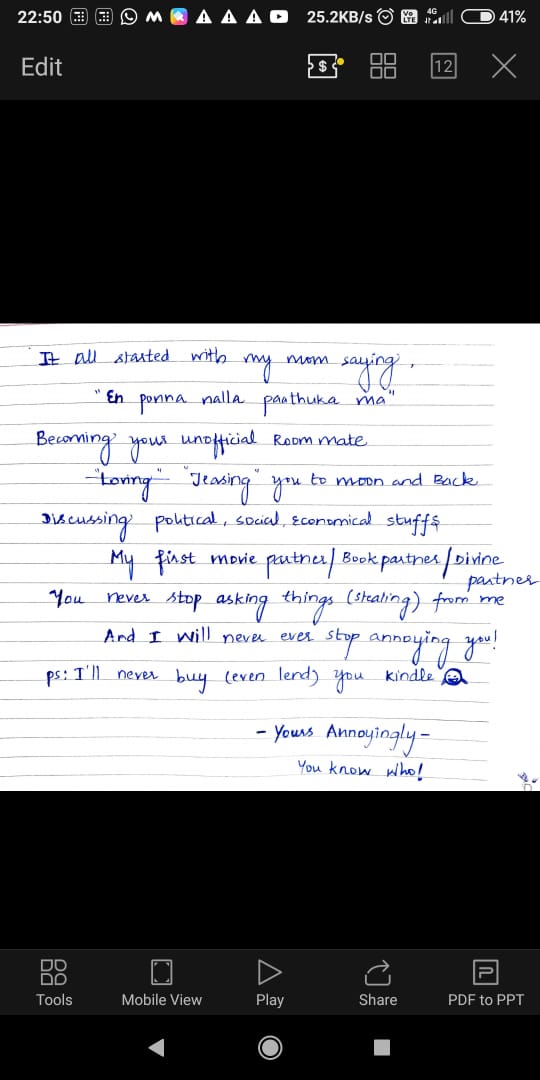 22:50 25.2KB/s Vo LTE 4G 41%
Edit $ 12
It all started with my mom saying,
"En ponna nalla paathuka ma"
Becoming your unofficial Room mate
"Loving" "Teasing" you to moon and Back
Discussing political, social, economical stuffs
My first movie partner/ Book partner / Divine
partner
You never stop asking things (stealing) from me
And I will never ever stop annoying you!
ps: I'll never buy (even lend) you kindle
- Yours Annoyingly -
You know who!
Tools Mobile View Play Share PDF to PPT